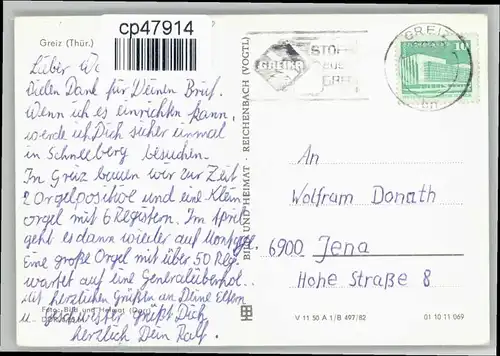 Greiz (Thür.)
cp47914
Lieber Wo
Vielen Dank für Deinen Brief.
Wenn ich es einrichten kann,
werde ich Dich sicher einmal
in Schneeberg besuchen.
In Greiz bauen wir zur Zeit
2 Orgelpositive und eine Klein
orgel mit 6 Registern. Im April
geht es dann wieder auf Montage.
Eine große Orgel mit über 50 Reg.
wartet auf eine Generalüberhol.
Mit herzlichen Grüßen an Deine Eltern
u. Geschwister grüßt Dich
herzlich Dein Ralf.
Foto: Bild und Heimat
BILD UND HEIMAT · REICHENBACH (VOGTL)
GREIKA
STOFFE
AUS
GREIZ
GREIZ
10
An
Wolfram Donath
6900 Jena
Hohe Straße 8
V 11 50 A 1/B 497/82
01 10 11 069